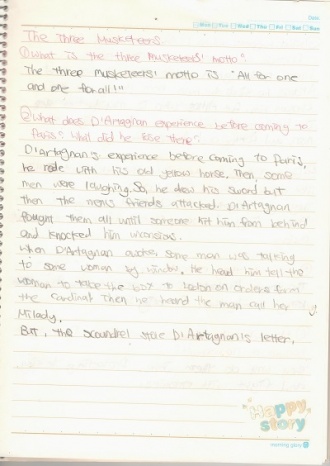 The Three Musketeers.
① What is the three musketeers' motto?
The three musketeers' motto is "All for one
and one for all!"
② What does D'Artagnan experience before coming to
Paris? What did he lose there?
D'Artagnan's experience before coming to Paris,
he rode with his old yellow horse. Then, some
men were laughing. So, he drew his sword but
then the men's friends attacked. D'Artagnan
fought them all until someone hit him from behind
and knocked him unconsious.
When D'Artagnan awoke, some man was talking
to some woman by window. He heard him tell the
woman to take the box to London on orders from
the Cardinal. Then he heard the man call her
Milady.
But, the scoundrel stole D'Artagnan's letter.
Happy
story
morning glory